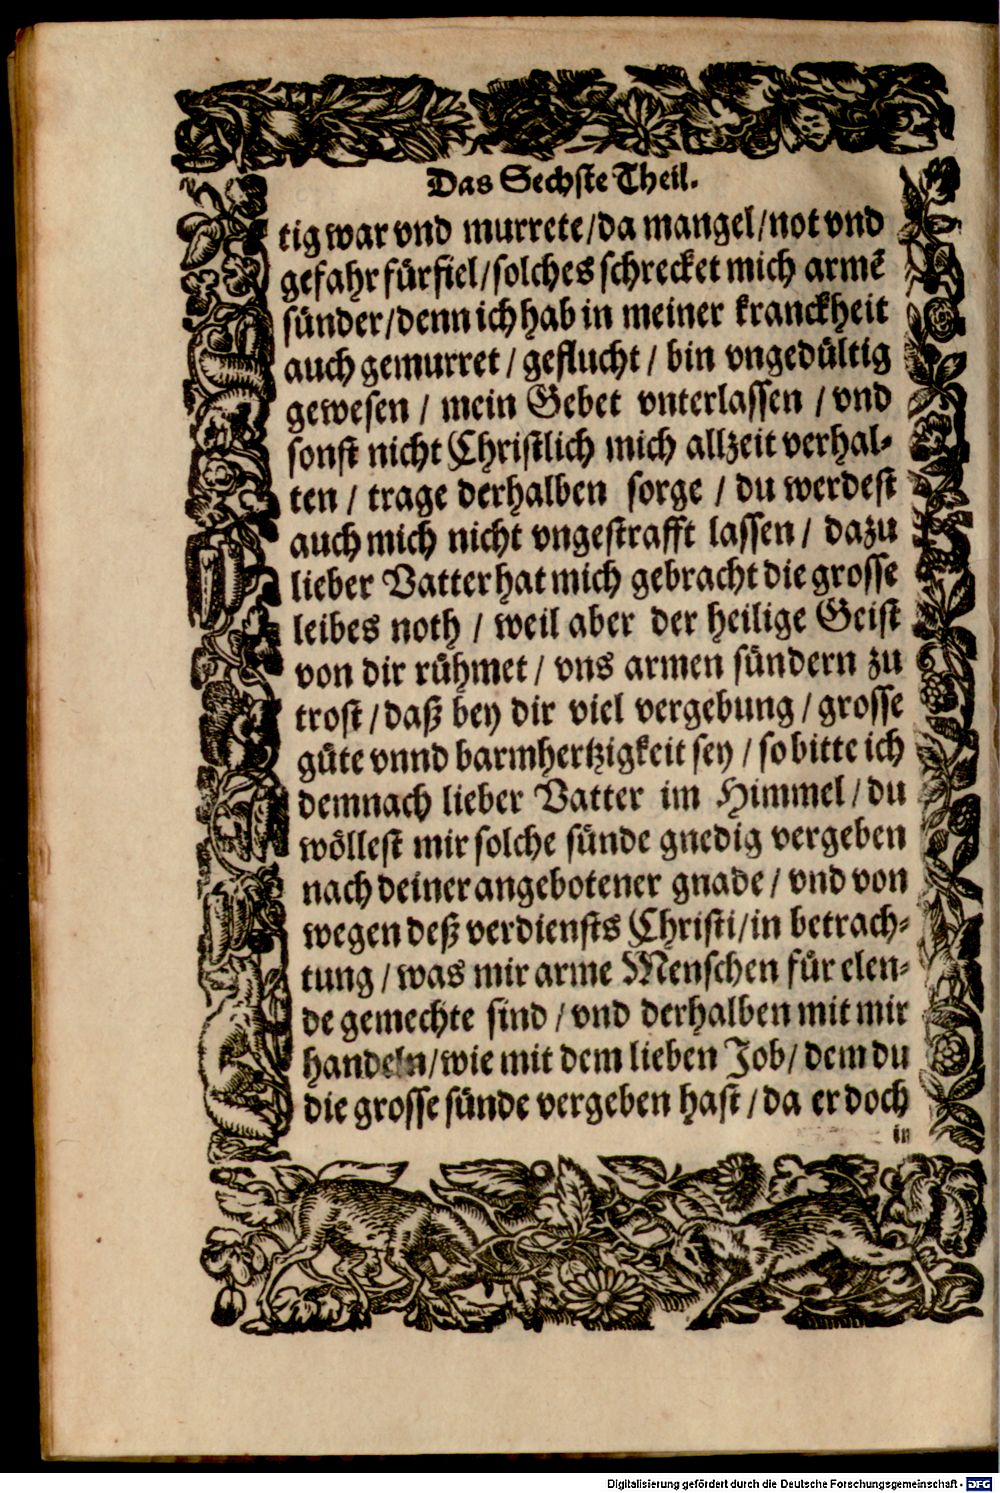 Das Sechste Theil.
tig war vnd murrete/da mangel/not vnd
gefahr fürfiel/solches schrecket mich armē
sünder/denn ich hab in meiner kranckheit
auch gemurret / geflucht / bin vngedültig
gewesen / mein Gebet vnterlassen / vnd
sonst nicht Christlich mich allzeit verhal-
ten / trage derhalben sorge / du werdest
auch mich nicht vngestrafft lassen / dazu
lieber Vatter hat mich gebracht die grosse
leibes noth / weil aber der heilige Geist
von dir rühmet / vns armen sündern zu
trost / daß bey dir viel vergebung / grosse
güte vnnd barmhertzigkeit sey / so bitte ich
demnach lieber Vatter im Himmel / du
wöllest mir solche sünde gnedig vergeben
nach deiner angebotener gnade / vnd von
wegen deß verdiensts Christi/in betrach-
tung / was mir arme Menschen für elen-
de gemechte sind / vnd derhalben mit mir
handeln/wie mit dem lieben Job/ dem du
die grosse sünde vergeben hast / da er doch
in
Digitalisierung gefördert durch die Deutsche Forschungsgemeinschaft - DFG